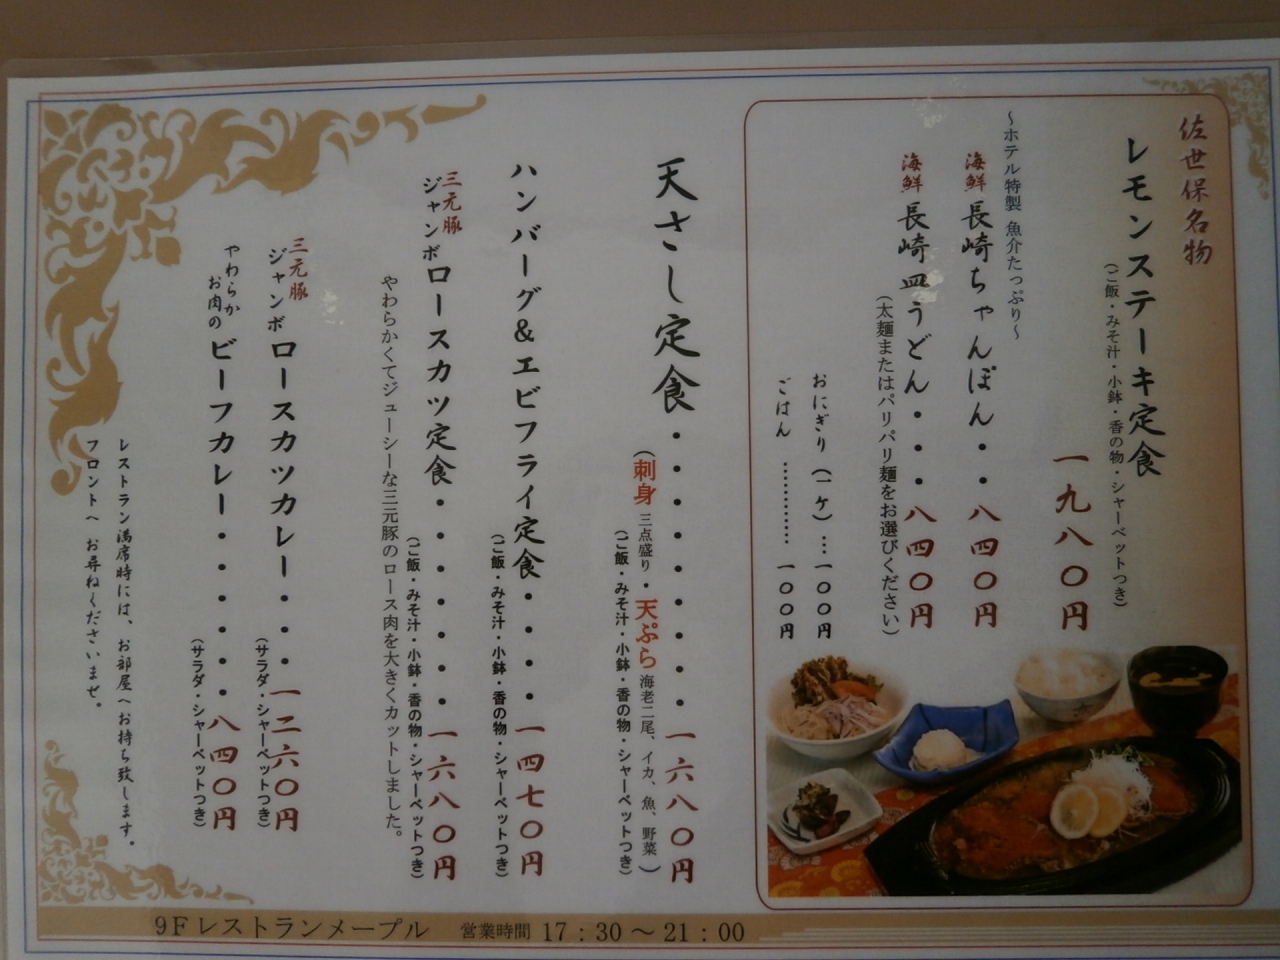 佐世保名物
レモンステーキ定食
(ご飯・みそ汁・小鉢・香の物・シャーベットつき)
一九八〇円
～ホテル特製 魚介たっぷり～
海鮮 長崎ちゃんぽん・・八四〇円
海鮮 長崎皿うどん・・・八四〇円
(太麺またはパリパリ麺をお選びください)
おにぎり(一ケ)…一〇〇円
ごはん…………一〇〇円
天さし定食・・・・・・・・・一六八〇円
(刺身 三点盛り・天ぷら 海老二尾、イカ、魚、野菜)
(ご飯・みそ汁・小鉢・香の物・シャーベットつき)
ハンバーグ&エビフライ定食・・・・一四七〇円
(ご飯・みそ汁・小鉢・香の物・シャーベットつき)
三元豚
ジャンボロースカツ定食・・・・・・・一六八〇円
(ご飯・みそ汁・小鉢・香の物・シャーベットつき)
やわらかくてジューシーな三元豚のロース肉を大きくカットしました。
三元豚
ジャンボロースカツカレー・・・一二六〇円
(サラダ・シャーベットつき)
やわらか
お肉のビーフカレー・・・・・・八四〇円
(サラダ・シャーベットつき)
レストラン満席時には、お部屋へお持ち致します。
フロントへ お尋ねくださいませ。
9Fレストランメープル 営業時間 17:30～21:00